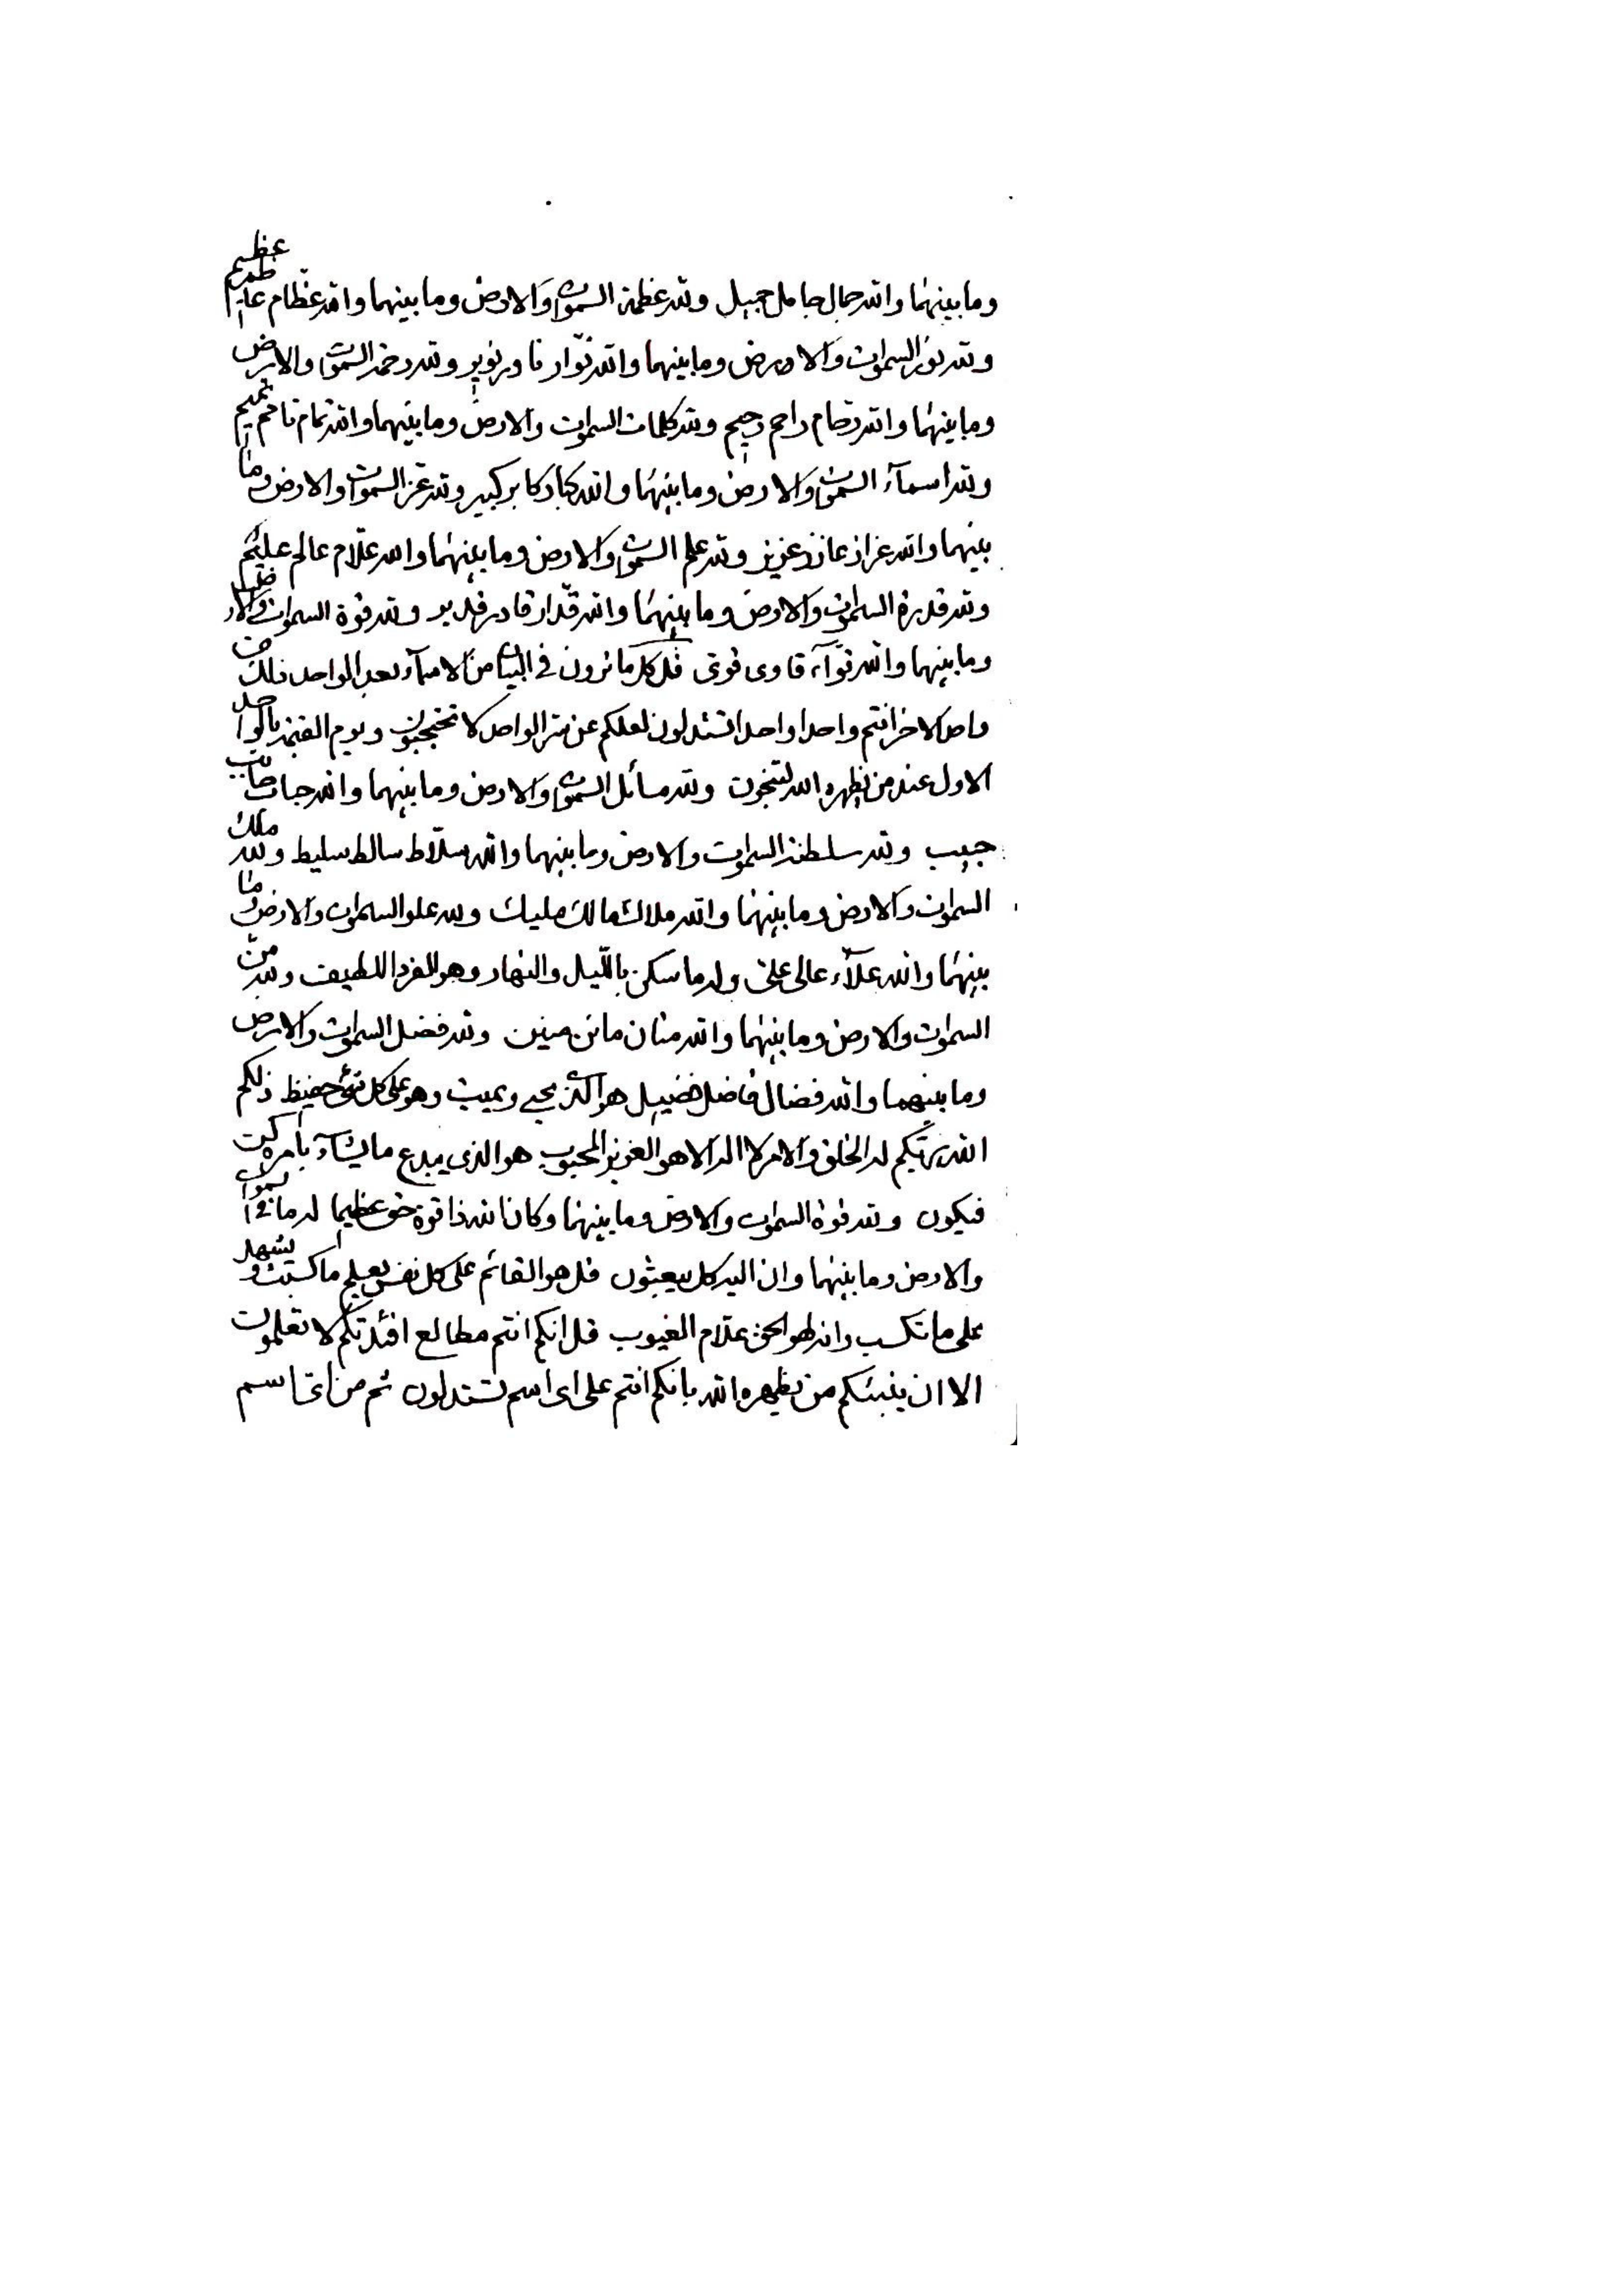 وما بينهما والله جمال جامل جميل ولله عظمة السموات والارض وما بينهما والله عظام عاظم عظيم
ولله نور السموات والارض وما بينهما والله نوار ناور نوير ولله رحمة السموات والارض
وما بينهما والله رحام راحم رحيم ولله كلمات السموات والارض وما بينهما والله تمام تامم تميم
ولله اسمآء السموات والارض وما بينهما والله كبار كابر كبير ولله عز السموات والارض وما
بينهما والله عزاز عازز عزيز ولله علم السموات والارض وما بينهما والله علام عالم عليم
ولله قدرة السموات والارض وما بينهما والله قدار قادر قدير ولله قوة السموات والارض
وما بينهما والله قوآء قاوى قوى قل كل ما ترون فى البيان من الاسمآء بعد الواحد ذلك
واحد الاخر انتم واحدا واحدا تستدلون لعلكم عن الواحد لا تحتجبون ويوم القيمة بالواحد
الاول عند من يظهره الله لتنجون ولله مسائل السموات والارض وما بينهما والله حباب حابب
حبيب ولله سلطنة السموات والارض وما بينهما والله سلاط سالط سليط ولله ملك
السموات والارض وما بينهما والله ملاك مالك مليك ولله علو السموات والارض وما
بينهما والله علآء عالى على وله ما سكن بالليل والنهار وهو الفرد اللطيف ولله من
السموات والارض وما بينهما والله منان مانن منين ولله فضل السموات والارض
وما بينهما والله فضال فاضل فضيل هو الذى يحيى ويميت وهو على كل شىء حفيظ ذلكم
الله ربكم له الخلق والامر لا اله الا هو العزيز المحبوب هو الذى يبدع ما يشآء بامره كن
فيكون ولله قوة السموات والارض وما بينهما وكان الله ذا قوة حق عظيما له ما فى السموات
والارض وما بينهما وان اليه كل يبعثون قل هو القائم على كل نفس يعلم ما كسبت ويشهد
على ما تكسب وانه لهو الحق علام الغيوب قل انكم انتم مطالع افئدتكم لا تعلمون
الا ان ينبئكم من يظهره الله بانكم انتم على اى اسم تستدلون ثم من اى اسم